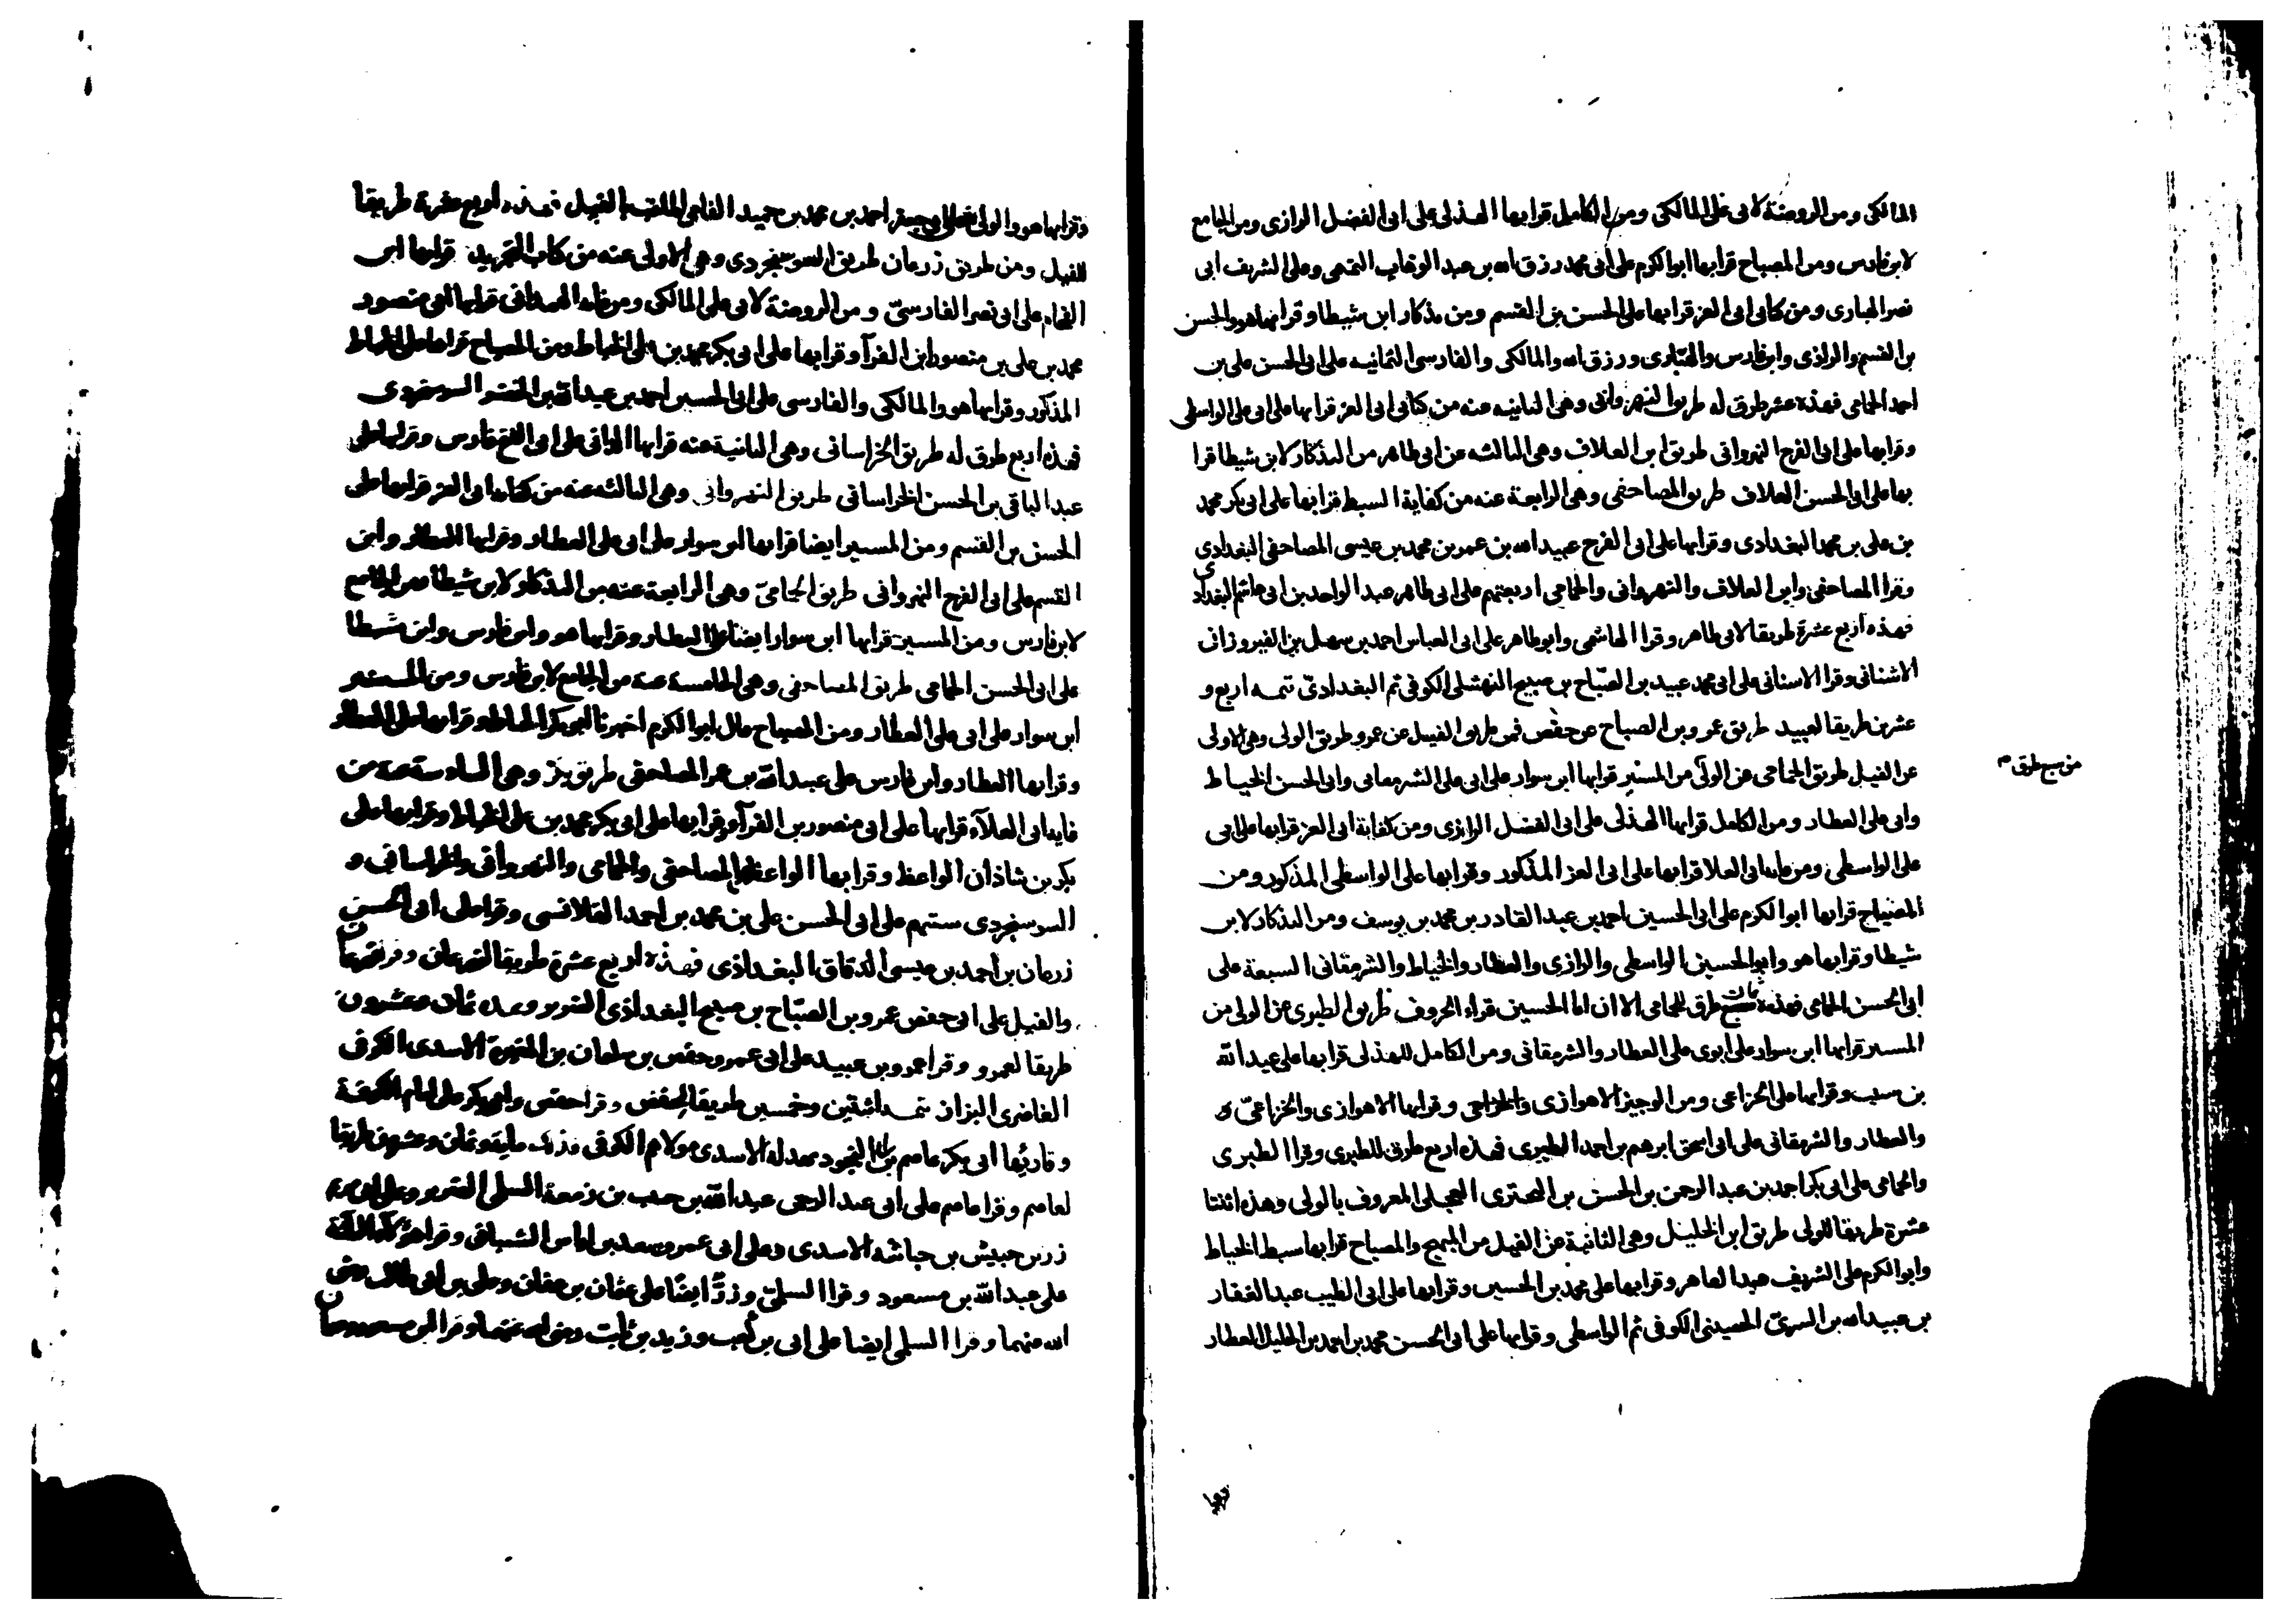 المالكي ومن الروضة لابي علي المالكي ومن الكامل قرا بها الهذلي على ابي الفضل الرازي ومن الجامع
لابن فارس ومن المصباح قرا بها ابو الكرم على ابي محمد رزق الله بن عبد الوهاب التميمي وعلى الشريف ابي
نصر الهباري ومن كتابي ابي العز قرا بها على الحسن بن القسم ومن تذكار ابن شيطا وقرا بها هو والحسن
بن القسم والرازي وابن فارس والهباري ورزق الله والمالكي والفارسي الثمانيه على ابي الحسن علي بن
احمد الحمامي فهذه عشر طرق له طريق النهرواني وهي الثانيه عنه من كتابي ابي العز قرا بها على ابي علي الواسطي
وقرا بها على ابي الفرج النهرواني طريق ابن العلاف وهي الثالثه عن ابي طاهر من التذكار لابن شيطا قرا
بها على ابي الحسن العلاف طريق المصاحفي وهي الرابعة عنه من كفاية السبط قرا بها على ابي بكر محمد
بن علي بن محمد البغدادي وقرا بها على ابي الفرج عبيد الله بن عمر بن محمد بن عيسى المصاحفي البغدادي
وقرا المصاحفي وابن العلاف والنهرواني والحمامي اربعتهم على ابي طاهر عبد الواحد بن ابي هاشم البغدادي
فهذه اربع عشرة طريقا لابي طاهر وقرا الهاشمي وابو طاهر على ابي العباس احمد بن سهل بن الفيروزاني
الاشناني وقرا الاشناني على ابي محمد عبيد بن الصّباح بن صبيح النهشلي الكوفي ثم البغداديّ تتمه اربع و
عشرين طريقا لعبيد طريق عمرو بن الصباح عن حفص فمن طريق الفيل عن عمرو طريق الولي وهي الاولى
عن الفيل طريق الحمامي عن الولي من المستنير قرا بها ابن سوار على ابي علي الشرمقاني وابي الحسن الخياط
من سبع طرق م
وابي علي العطار ومن الكامل قرا بها الهذلي على ابي الفضل الرازي ومن كفاية ابي العز قرا بها على ابي
علي الواسطي ومن غاية ابي العلا قرا بها على ابي العز المذكور وقرا بها على الواسطي المذكور ومن
المصباح قرا بها ابو الكرم على ابي الحسين احمد بن عبد القادر بن محمد بن يوسف ومن التذكار لابن
شيطا وقرا بها هو وابو الحسين الواسطي والرازي والعطار والخياط والشرمقاني السبعة على
ابي الحسن الحمامي فهذه ثمان طرق للحمامي الا ان ابا الحسين قراء الحروف طريق الطبري عن الولي من
المستنير قرا بها ابن سوار على ابوي علي العطار والشرمقاني ومن الكامل للهذلي قرا بها على عبد الله
بن شبيب وقرا بها على الخزاعي ومن الوجيز للاهوازي وقرا بها الاهوازي والخزاعيّ و
والعطار والشرمقاني على ابي اسحق ابرهيم بن احمد الطبري فهذه اربع طرق للطبري وقرا الطبري
والحمامي على ابي بكر احمد بن عبد الرحمن بن الحسن بن البحتري العجلي المعروف بالولي وهذه اثنتا
عشرة طريقا للولي طريق ابن الخليل وهي الثانية عن الفيل من المبهج والمصباح قرا بها سبط الخياط
وابو الكرم على الشريف عبد القاهر وقرا بها على محمد بن الحسين وقرا بها على ابي الطيب عبد الغفار
بن عبيد الله بن السريّ الحصيني الكوفي ثم الواسطي وقرا بها على ابي الحسن محمد بن احمد بن الخليل العطار
وقرا بها هو والولي على ابي جعفر احمد بن محمد بن حميد الفامي الملقب بالفيل فهذه اربع عشرة طريقا
للفيل ومن طريق زرعان طريق السوسنجردي وهي الاولى عنه من كتاب التجريد قرا بها ابن
الفحام على ابي نصر الفارسيّ ومن الروضة لابي علي المالكي ومن غاية الهمداني قرا بها على ابي منصور
محمد بن علي بن منصور ابن الفرآ وقرا بها على ابي بكر محمد بن علي الخياط ومن المصباح قرا بها على الخياط
المذكور وقرا بها هو والمالكي والفارسي على ابي الحسين احمد بن عبد الله بن الخضر السوسنجردي
فهذه اربع طرق له طريق الخراساني وهي الثانية عنه قرا بها الداني على ابي الفتح فارس وقرا بها على
عبد الباقي بن الحسن الخراساني طريق النهرواني وهي الثالثه عنه من كتابي ابي العز قرا بها على
الحسن بن القسم ومن المستنير ايضا قرا بها ابن سوار على ابي علي العطار وقرا بها العطار وابن
القسم على ابي الفرج النهرواني طريق الحماميّ وهي الرابعة عنه من التذكار لابن شيطا ومن الجامع
لابن فارس ومن المستنير قرا بها ابن سوار ايضا على العطار وقرا بها هو وابن فارس وابن شيطا
على ابي الحسن الحمامي طريق المصاحفي وهي الخامسة عنه من الجامع لابن فارس ومن المستنير
ابن سوار على ابي علي العطار ومن المصباح قال ابو الكرم اخبرنا ابو بكر الخياط وقرا بها على العطار
وقرا بها العطار وابن فارس على عبيد الله بن عمر المصاحفي طريق بكر وهي السادسة عنه من
غاية ابي العلآء قرا بها على ابي منصور بن الفرآ وقرا بها على ابي بكر محمد بن علي الخياط وقرا بها على
بكر بن شاذان الواعظ وقرا بها الواعظ والمصاحفي والحمامي والنهرواني والخراساني و
السوسنجردي ستتهم على ابي الحسن علي بن محمد بن احمد القلانسي وقرا على ابي الحسن
زرعان بن احمد بن عيسى الدقاق البغداذي فهذه اربع عشرة طريقا لزرعان وقرا زرعان
والفيل على ابي حفص عمرو بن الصّباح بن صبيح البغداذي الضرير وهذه ثمان وعشرون
طريقا لعمرو وقرا عمرو بن عبيد على ابي عمرو حفص بن سليمان بن المغيرة الاسدي الكوفي
الغاضري البزاز تتمه اثنتين وخمسين طريقا لحفص وقرا حفص وابو بكر على امام الكوفة
وقارئها ابي بكر عاصم بن ابي النجود بهدلة الاسدي مولاهم الكوفي فذلك ماية وثمان وعشرون طريقا
لعاصم وقرا عاصم على ابي عبد الرحمن عبد الله بن حبيب بن ربيعة السلمي الضرير وعلى ابي مريم
زر بن حبيش بن حباشة الاسدي وعلى ابي عمرو سعد بن اياس الشيباني وقرا هؤلآء الثلاثة
على عبد الله بن مسعود وقرا السلميّ وزرّ ايضا على عثمان بن عفان وعلي بن ابي طالب رضي
الله عنهما وقرا السلمي ايضا على ابي بن كعب وزيد بن ثابت رضي الله عنهما وقرا ابن مسعود وعثمان